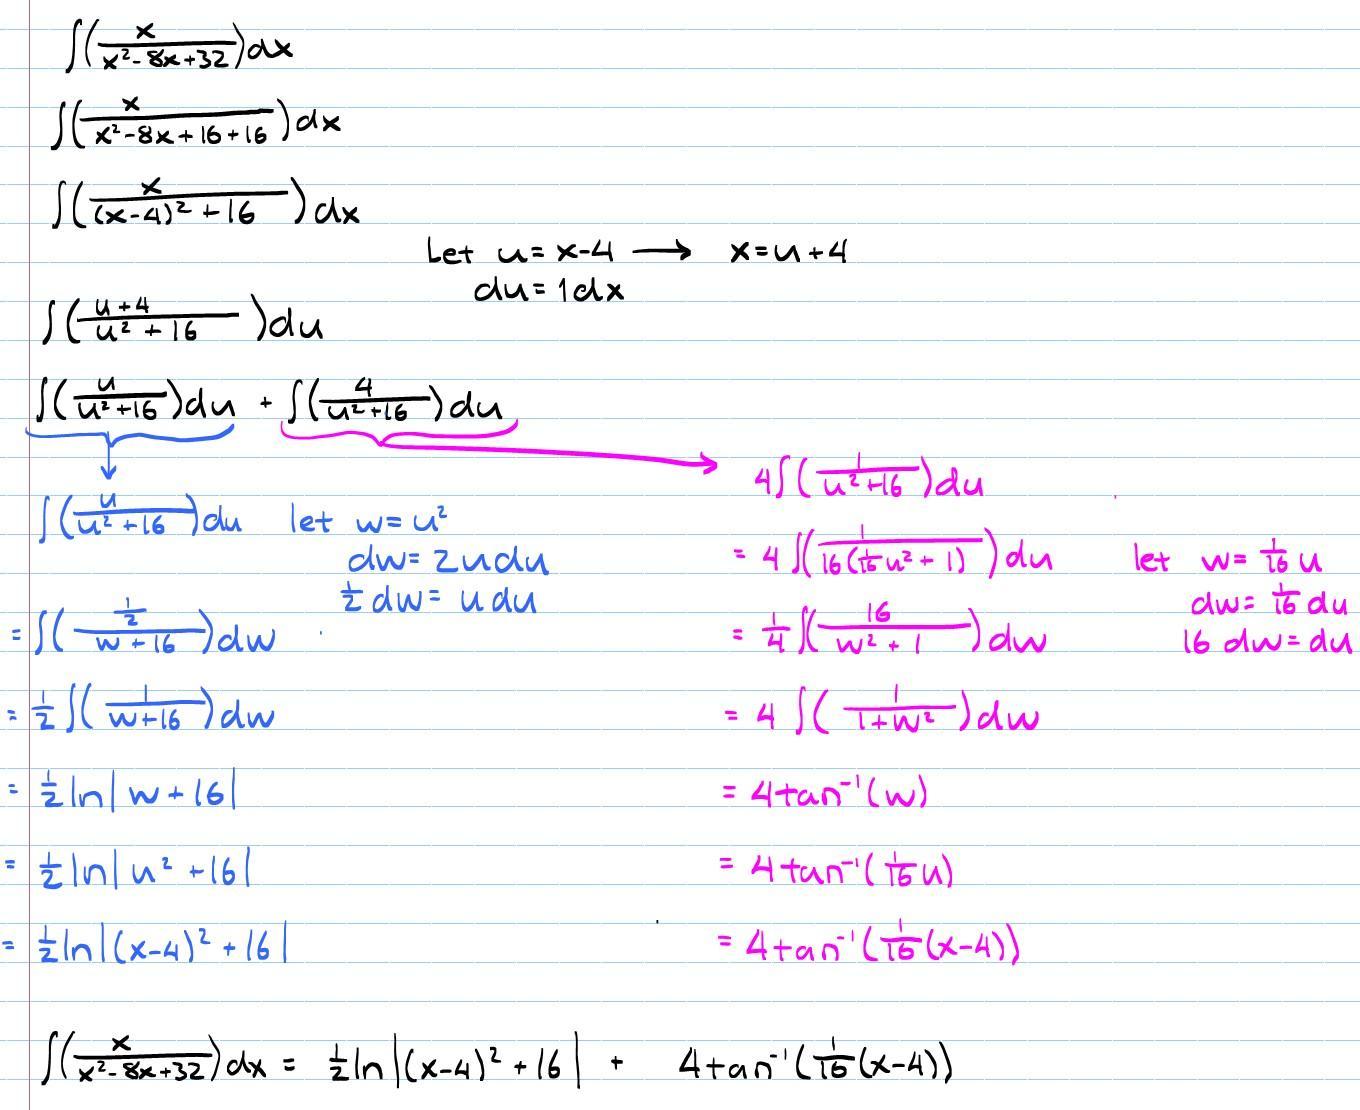 ∫(x/(x²-8x+32))dx
∫(x/(x²-8x+16+16))dx
∫(x/((x-4)²+16))dx
Let u=x-4 ⟶ x=u+4
du=1dx
∫((u+4)/(u²+16))du
∫(u/(u²+16))du + ∫(4/(u²+16))du
∫(u/(u²+16))du let w=u²
dw=2udu
½dw=udu
=∫(½/(w+16))dw
=½∫(1/(w+16))dw
=½ln|w+16|
=½ln|u²+16|
=½ln|(x-4)²+16|
4∫(1/(u²+16))du
=4∫(1/(16(1/16 u²+1)))du let w=1/16 u
dw=1/16 du
16 dw=du
=¼∫(16/(w²+1))dw
=4∫(1/(1+w²))dw
=4tan⁻¹(w)
=4tan⁻¹(1/16 u)
=4tan⁻¹(1/16(x-4))
∫(x/(x²-8x+32))dx = ½ln|(x-4)²+16| + 4tan⁻¹(1/16(x-4))